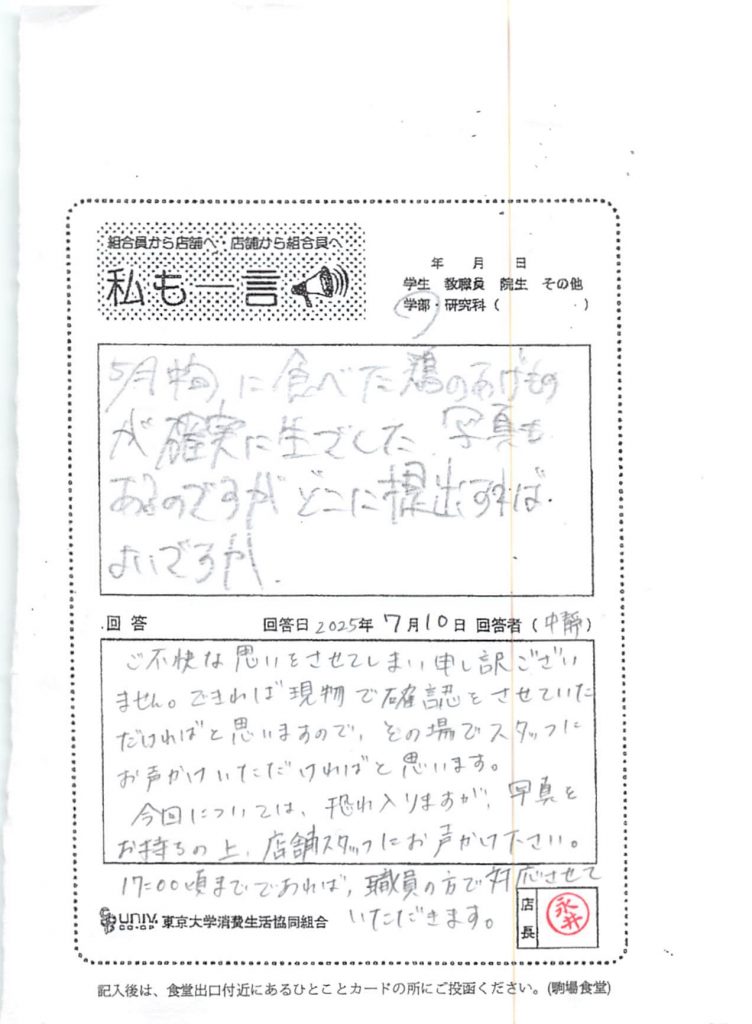 組合員から店舗へ・店舗から組合員へ
私も一言
年 月 日
学生 教職員 院生 その他
学部・研究科 ( )
5月末に食べた鶏のあげもの
が確実に生でした 写真も
あるのですが どこに提出すれば
よいですか.
回答 回答日 2025年 7月10日 回答者 (中静)
ご不快な思いをさせてしまい申し訳ござい
ません。できれば現物で確認をさせていた
だければと思いますので、その場でスタッフに
お声かけいただければと思います。
今回については、恐れ入りますが、写真を
お持ちの上、店舗スタッフにお声かけ下さい。
17:00頃まであれば、職員の方で対応させて
いただきます。
UNIV. CO-OP 東京大学消費生活協同組合
店長 永井
記入後は、食堂出口付近にあるひとことカードの所にご投函ください。(駒場食堂)